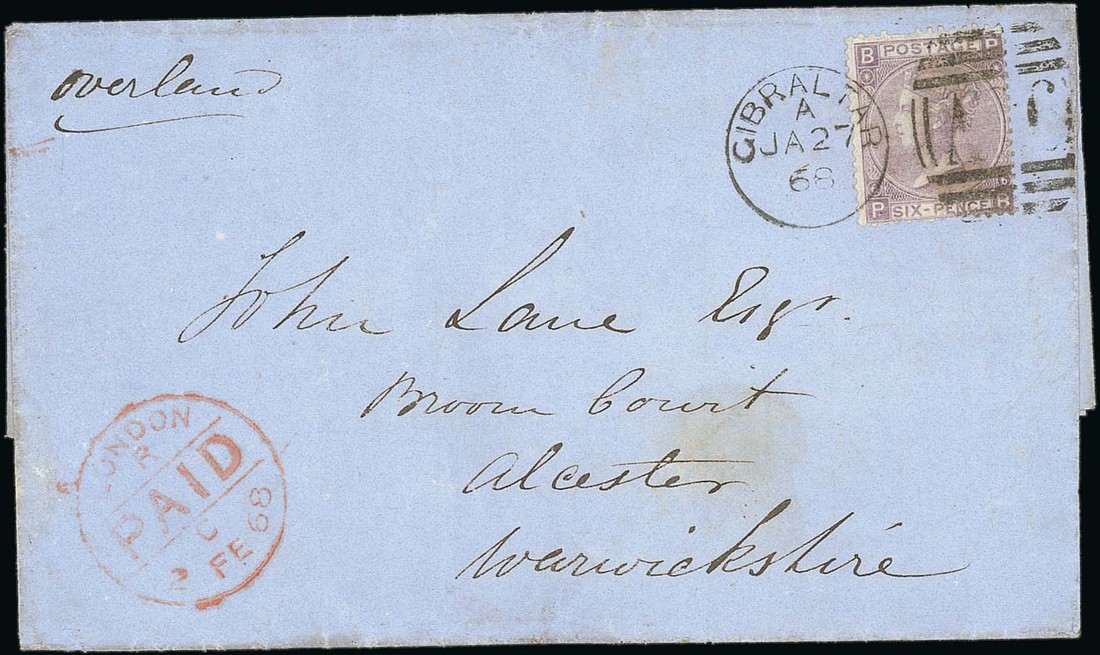 overland
GIBRALTAR
A
JA 27
68
B POSTAGE P
P SIX-PENCE B
6
A
John Lane Esqr.
Broom Court
Alcester
Warwickshire
LONDON
R
PAID
C
2 FE 68